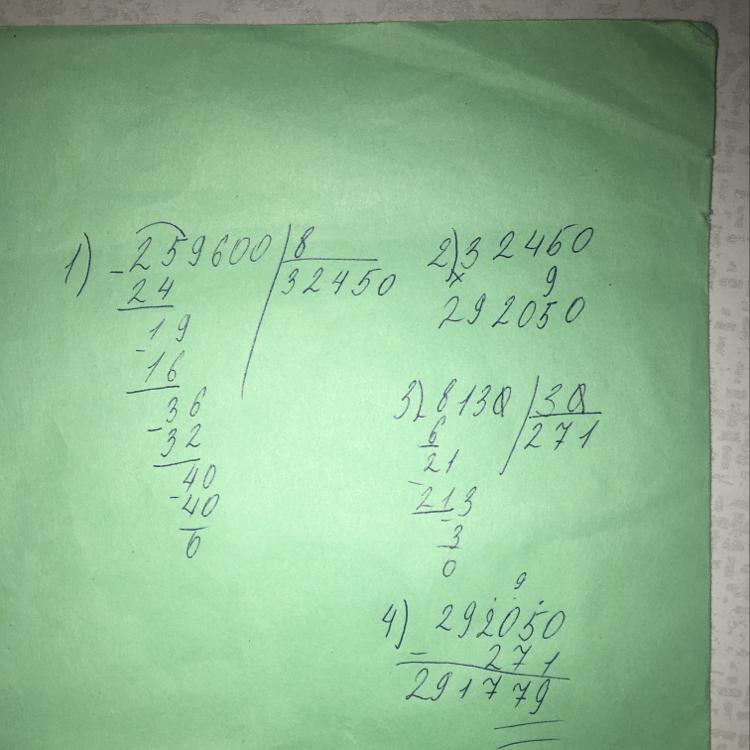 1) - 259600 | 8
24 32450
19
- 16
36
- 32
40
- 40
0
2) 32450
× 9
292050
3) 8130 | 30
6 271
21
- 21 3
- 3
0
9
4) 292050
- 271
291779